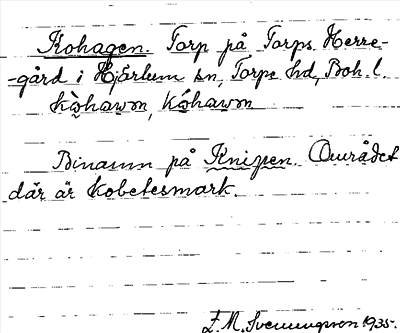 Kohagen. Torp på Torps Herre-
-gård i Hjärtum sn, Torpe hd, Boh. l.
Binamn på Knipen. Området
där är kobetesmark.
E. M. Svenungsson 1935.